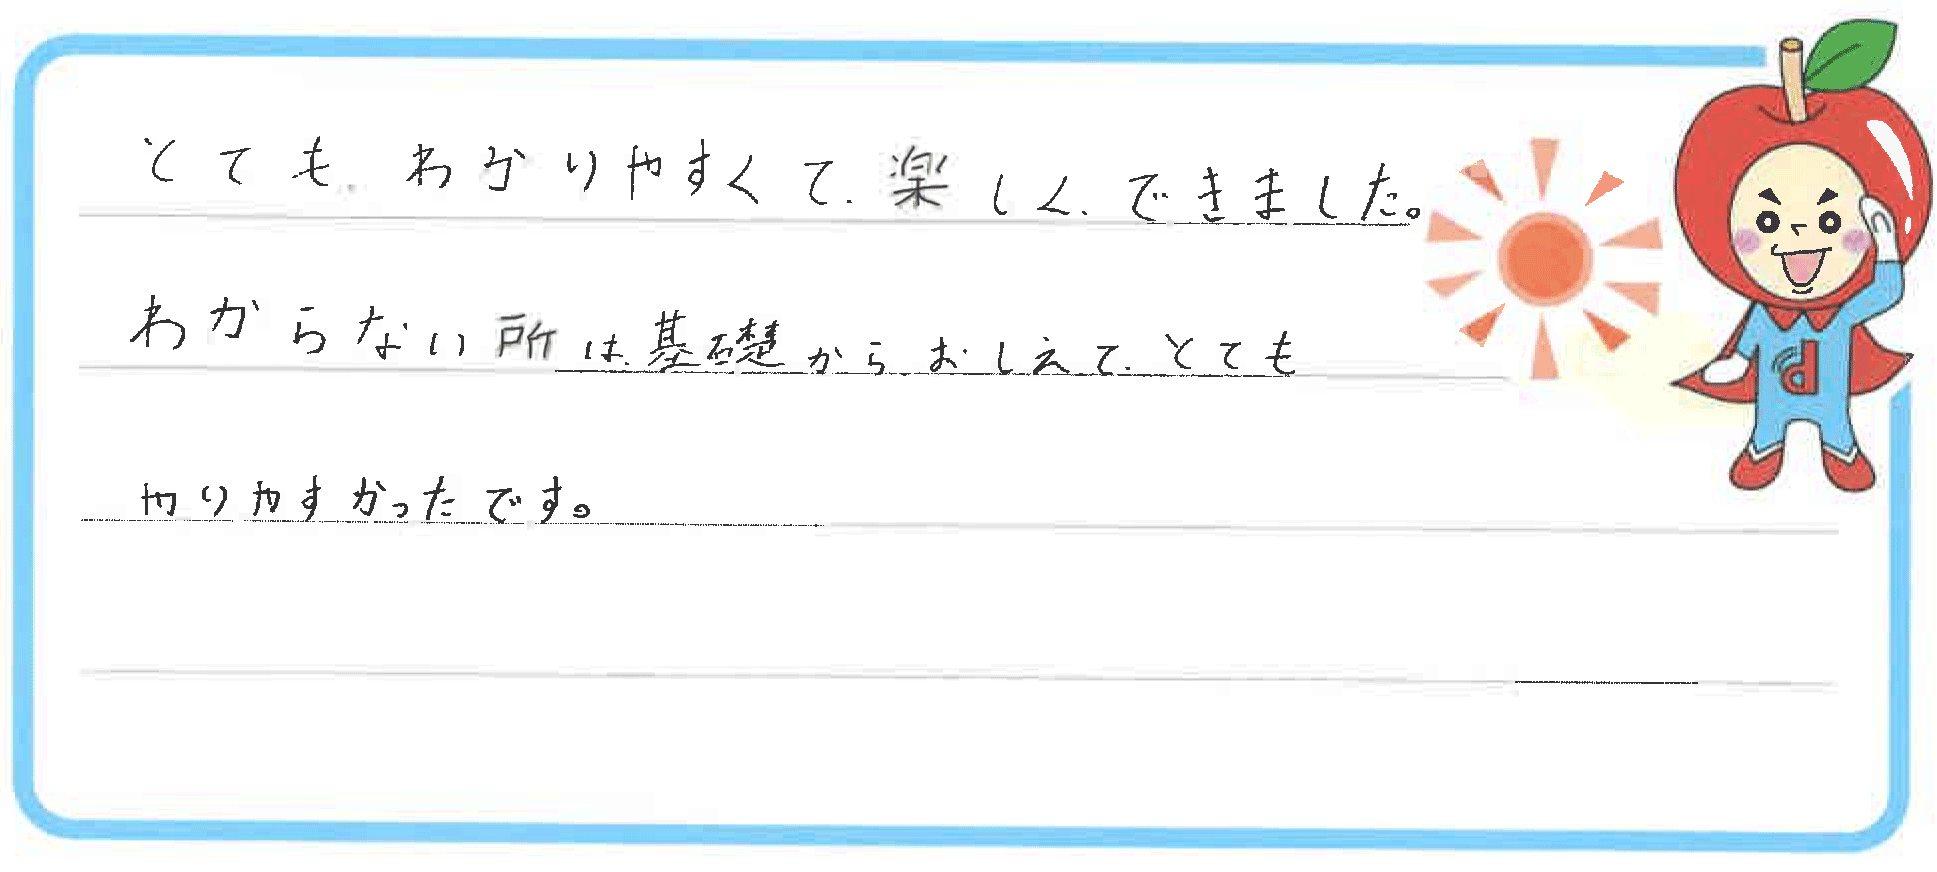 とても わかりやすくて 楽しく できました。
わからない所は 基礎から おしえて とても
やりやすかったです。
d